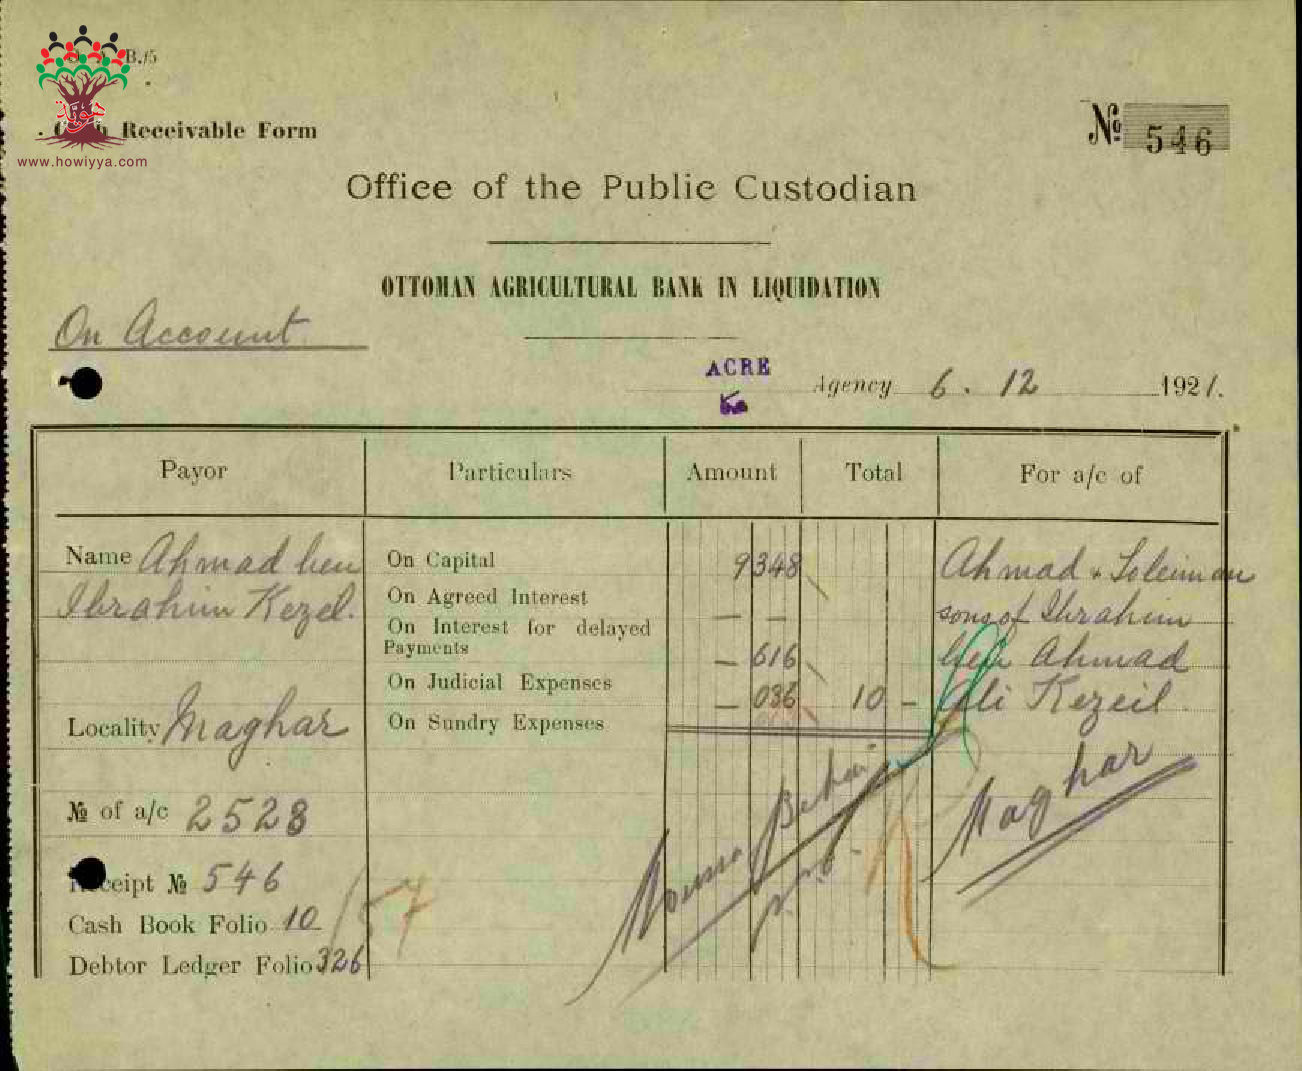 B./5
Receivable Form
هوية
www.howiyya.com
№ 546
Office of the Public Custodian
OTTOMAN AGRICULTURAL BANK IN LIQUIDATION
On Account
ACRE
Agency 6. 12 1921.
Payor Particulars Amount Total For a/c of
Name Ahmad ben
Ibrahim Kezel.
Locality Maghar
№ of a/c 2528
Receipt № 546
Cash Book Folio 10
Debtor Ledger Folio 326
57
On Capital 9 348
On Agreed Interest — —
On Interest for delayed
Payments — 616
On Judicial Expenses — 036 10 —
On Sundry Expenses
Ahmad & Soleiman
sons of Ibrahim
ben Ahmad
Ali Kezeil
Maghar